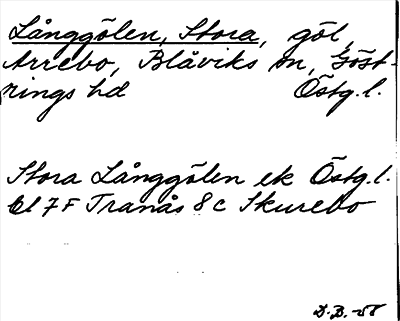 Långgölen, Stora, göl,
Arrebo, Blåviks sn, Göst-
rings hd Östg.l.
Stora Långgölen ek Östg.l.
bl 7F Tranås 8c Skurebo
D.B. -58